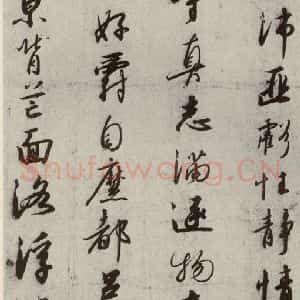 沛匪虧性静情
守真志滿逐物
好爵自縻都邑
京背芒面洛浮
Shufawang.CN